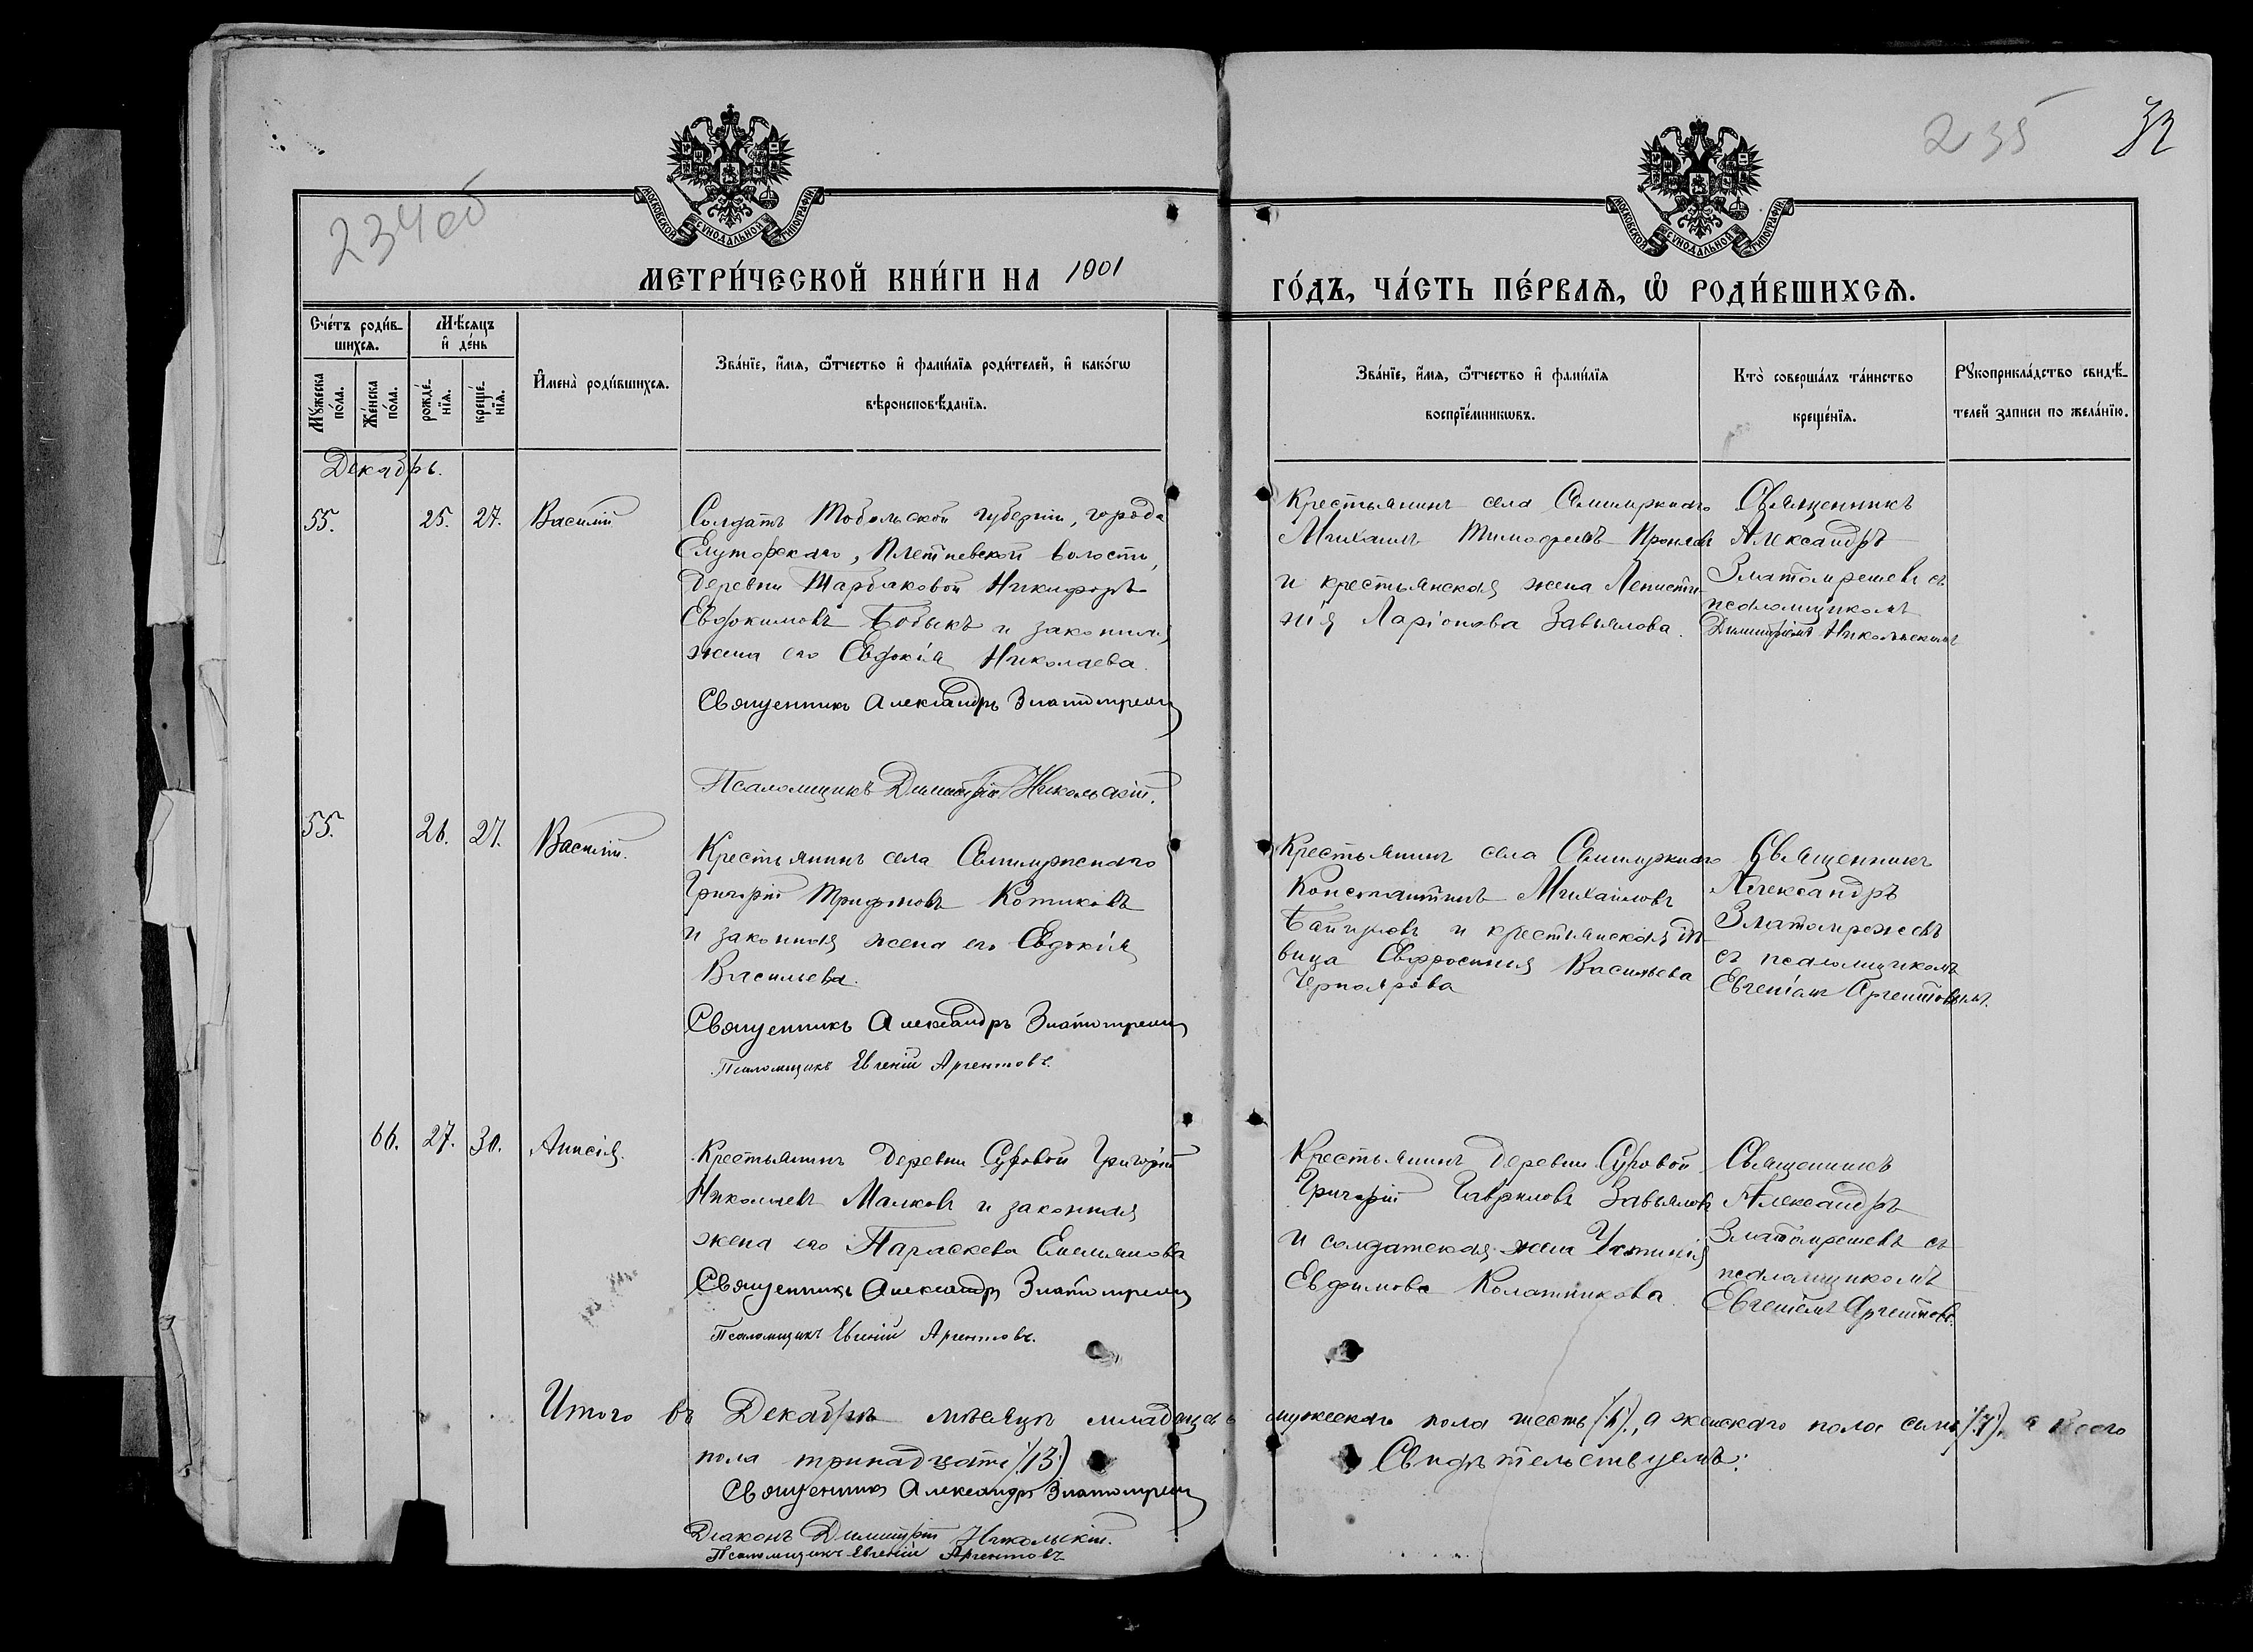 234 об
235
32
МОСКОВСКОЙ СѴНОДАЛЬНОЙ ТИПОГРАФІИ
МОСКОВСКОЙ СѴНОДАЛЬНОЙ ТИПОГРАФІИ
МЕТРИ́ЧЕСКОЙ КНИ́ГИ НА 1901
ГО́ДЪ, ЧА́СТЬ ПЕ́РВАѦ, Ѡ҆ РОДИ́ВШИХСѦ.
Сче́тъ роди́в-
шихсѧ.
Мѣ́сѧцъ
и҆ де́нь
Мꙋ́жеска
по́ла.
Же́нска
по́ла.
рожде́-
нїѧ.
креще́-
нїѧ.
И҆мена̀ роди́вшихсѧ.
Зва́нїе, и҆́мѧ, ѻ҆́тчество и҆ фами́лїѧ роди́телей, и҆ како́гѡ
вѣроисповѣ́данїѧ.
Зва́нїе, и҆́мѧ, ѻ҆́тчество и҆ фами́лїѧ
воспрїе́мникѡвъ.
Кто̀ соверша́лъ та́инство
креще́нїѧ.
Рꙋкоприкла́дство свидѣ́-
телей записи по жела́нїю.
Декабрь.
55.
25.
27.
Василій
Солдатъ Тобольской губерніи, города
Елуторскаго, Плетневской волости,
деревни Никифоръ
Евдокимовъ Бобыкъ и законная
жена его Евдокія Николаева.
Священникъ Александръ
Псаломщикъ Димитрій Никольскій.
Крестьянинъ села
Михаилъ Тимофеевъ
и крестьянская жена
нія Ларіонова Завьялова.
Священникъ
Александръ
съ
псаломщикомъ
Димитріемъ Никольскимъ
55.
26.
27.
Василій.
Крестьянинъ села
Григорій Трифоновъ Котиковъ
и законная жена его Евдокія
Васильева.
Священникъ Александръ
Псаломщикъ Евгеній Аргентовъ.
Крестьянинъ села
Константинъ Михайловъ
и крестьянская дѣ-
вица Евфросинія Васильева
Черноярова
Священникъ
Александръ
съ псаломщикомъ
Евгеніемъ Аргентовымъ.
66.
27.
30.
Анисія.
Крестьянинъ деревни Суровой Григорій
Николаевъ Малковъ и законная
жена его Параскева Емельянова
Священникъ Александръ
Псаломщикъ Евгеній Аргентовъ.
Крестьянинъ деревни Суровой
Григорій Гавриловъ Завьяловъ
и солдатская жена Устинія
Евфимова Колатникова
Священникъ
Александръ
съ
псаломщикомъ
Евгеніемъ Аргентовымъ
Итого въ Декабрѣ мѣсяцѣ младенцевъ мужескаго пола шесть (6), а женскаго пола семь (7), а всего
пола тринадцать (13)
Свидѣтельствуемъ:
Священникъ Александръ
Діаконъ Димитрій Никольскій.
Псаломщикъ Евгеній Аргентовъ